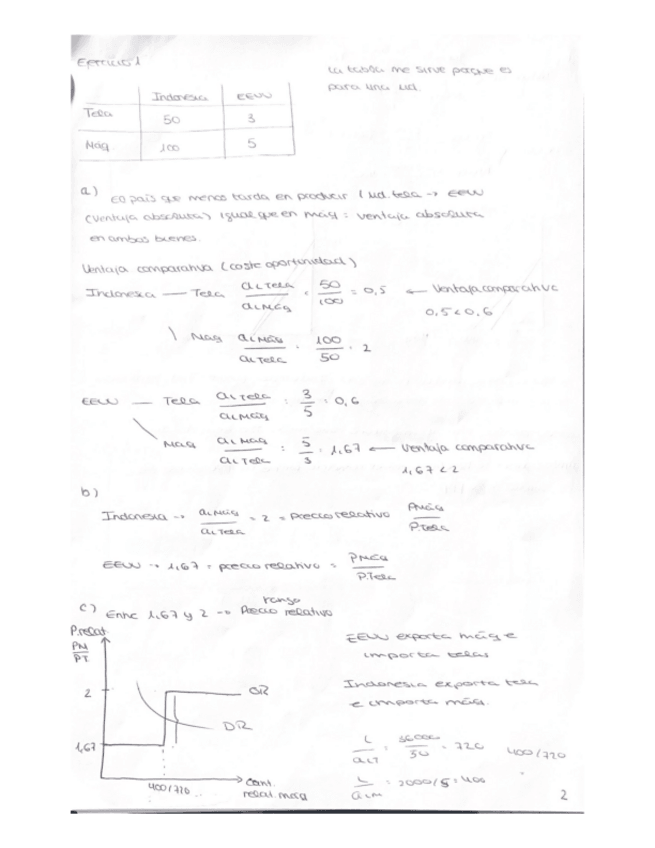 Ejercicio 1
La tabla me sirve porque es
para una ud.
Indonesia EEUU
Tela 50 3
Máq. 100 5
a) El país que menos tarda en producir 1 ud. tela → EEUU
(ventaja absoluta) igual que en máq: ventaja absoluta
en ambos bienes.
Ventaja comparativa (coste oportunidad)
Indonesia — Tela aL Tela / aL Máq = 50 / 100 = 0,5 ← Ventaja comparativa
0,5 < 0,6
\ Maq aL Máq / aL Tela = 100 / 50 = 2
EEUU — Tela aL Tela / aL Máq = 3 / 5 = 0,6
\ Maq aL Maq / aL Tela = 5 / 3 = 1,67 ← Ventaja comparativa
1,67 < 2
b)
Indonesia → aL Máq / aL Tela = 2 = precio relativo PMáq / PTela
EEUU → 1,67 = precio relativo = PMáq / P.Tela
c) Entre 1,67 y 2 → rango Precio relativo
P.relat.
PM / PT
2
OR
DR
1,67
400/720
cant.
relat. maq
EEUU exporta máq e
importa telas
Indonesia exporta tela
e importa máq.
L / aLT = 36000 / 50 = 720 400/720
L / aLM = 2000/5 = 400
2